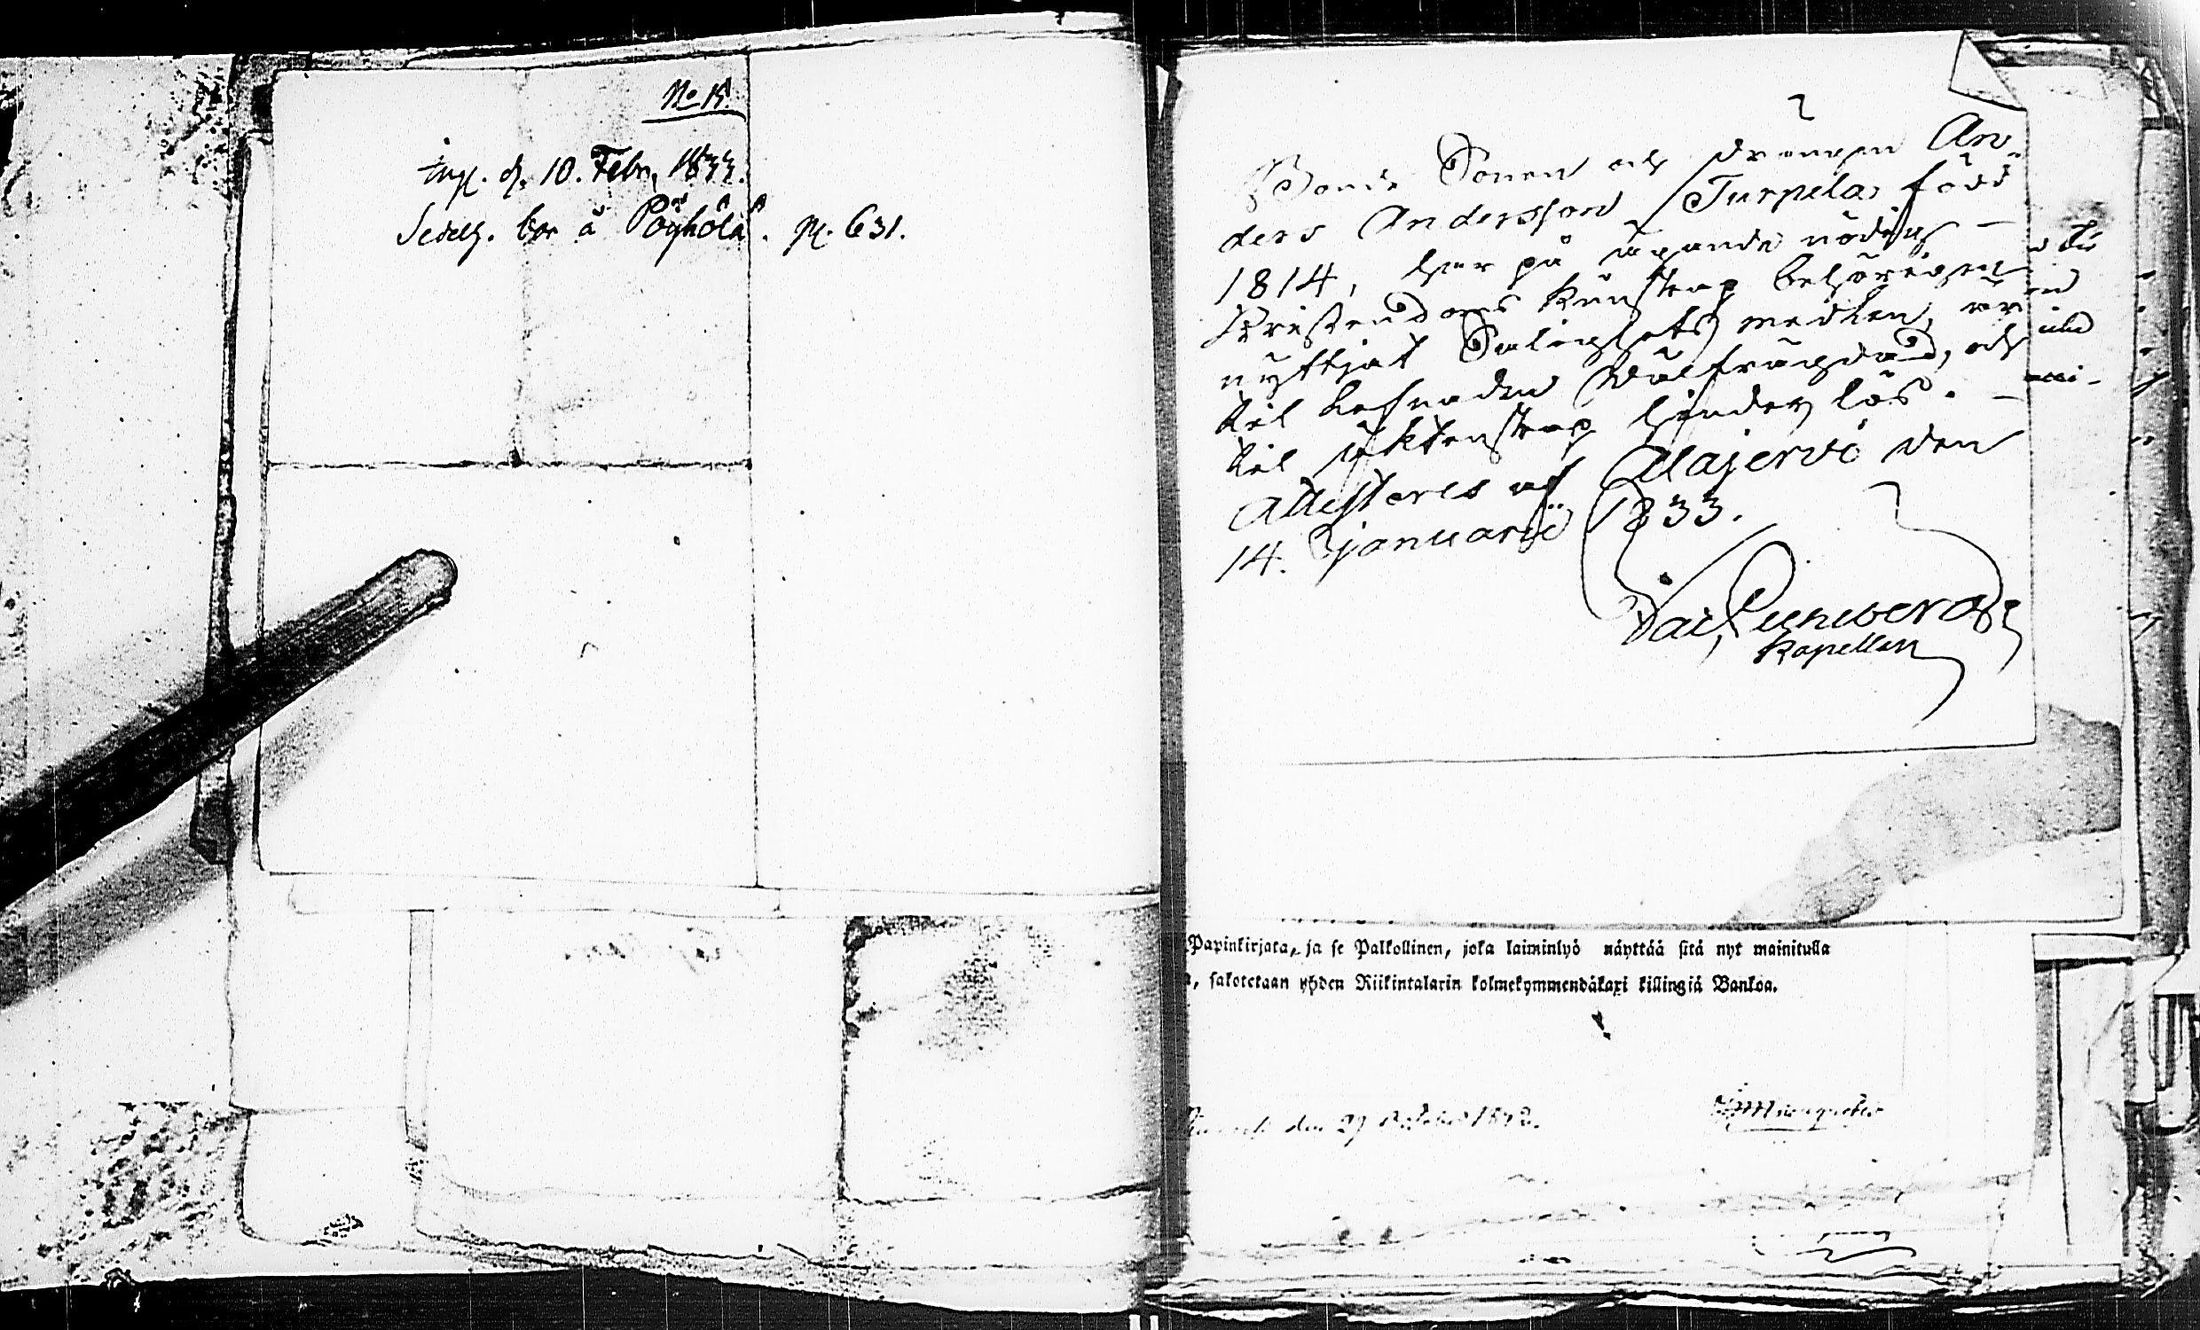 No 15.
Inl. d. 10. Febr. 1833.
Sedelg. bor å Pöyhölä. p. 631.
Bonde Sonen och drängen An-
ders Andersson Turpela, född
1814, har på ägande nödig
Kristendoms kunskap behörigen
nyttjat Salighets medlen, är
til lefnaden wälfrägdad, och
til äktenskap hinder lös. –
Attesteras af Alajerwi den
14. Januarii 1833.
Kapellan
Papinkirjata, ja se Palkollinen, joka laiminlyö näyttää sitä nyt mainitulla
, sakotetaan yhden Riikintalarin kolmekymmendäkaxi killingiä Bankoa.
den 29 October 1832.